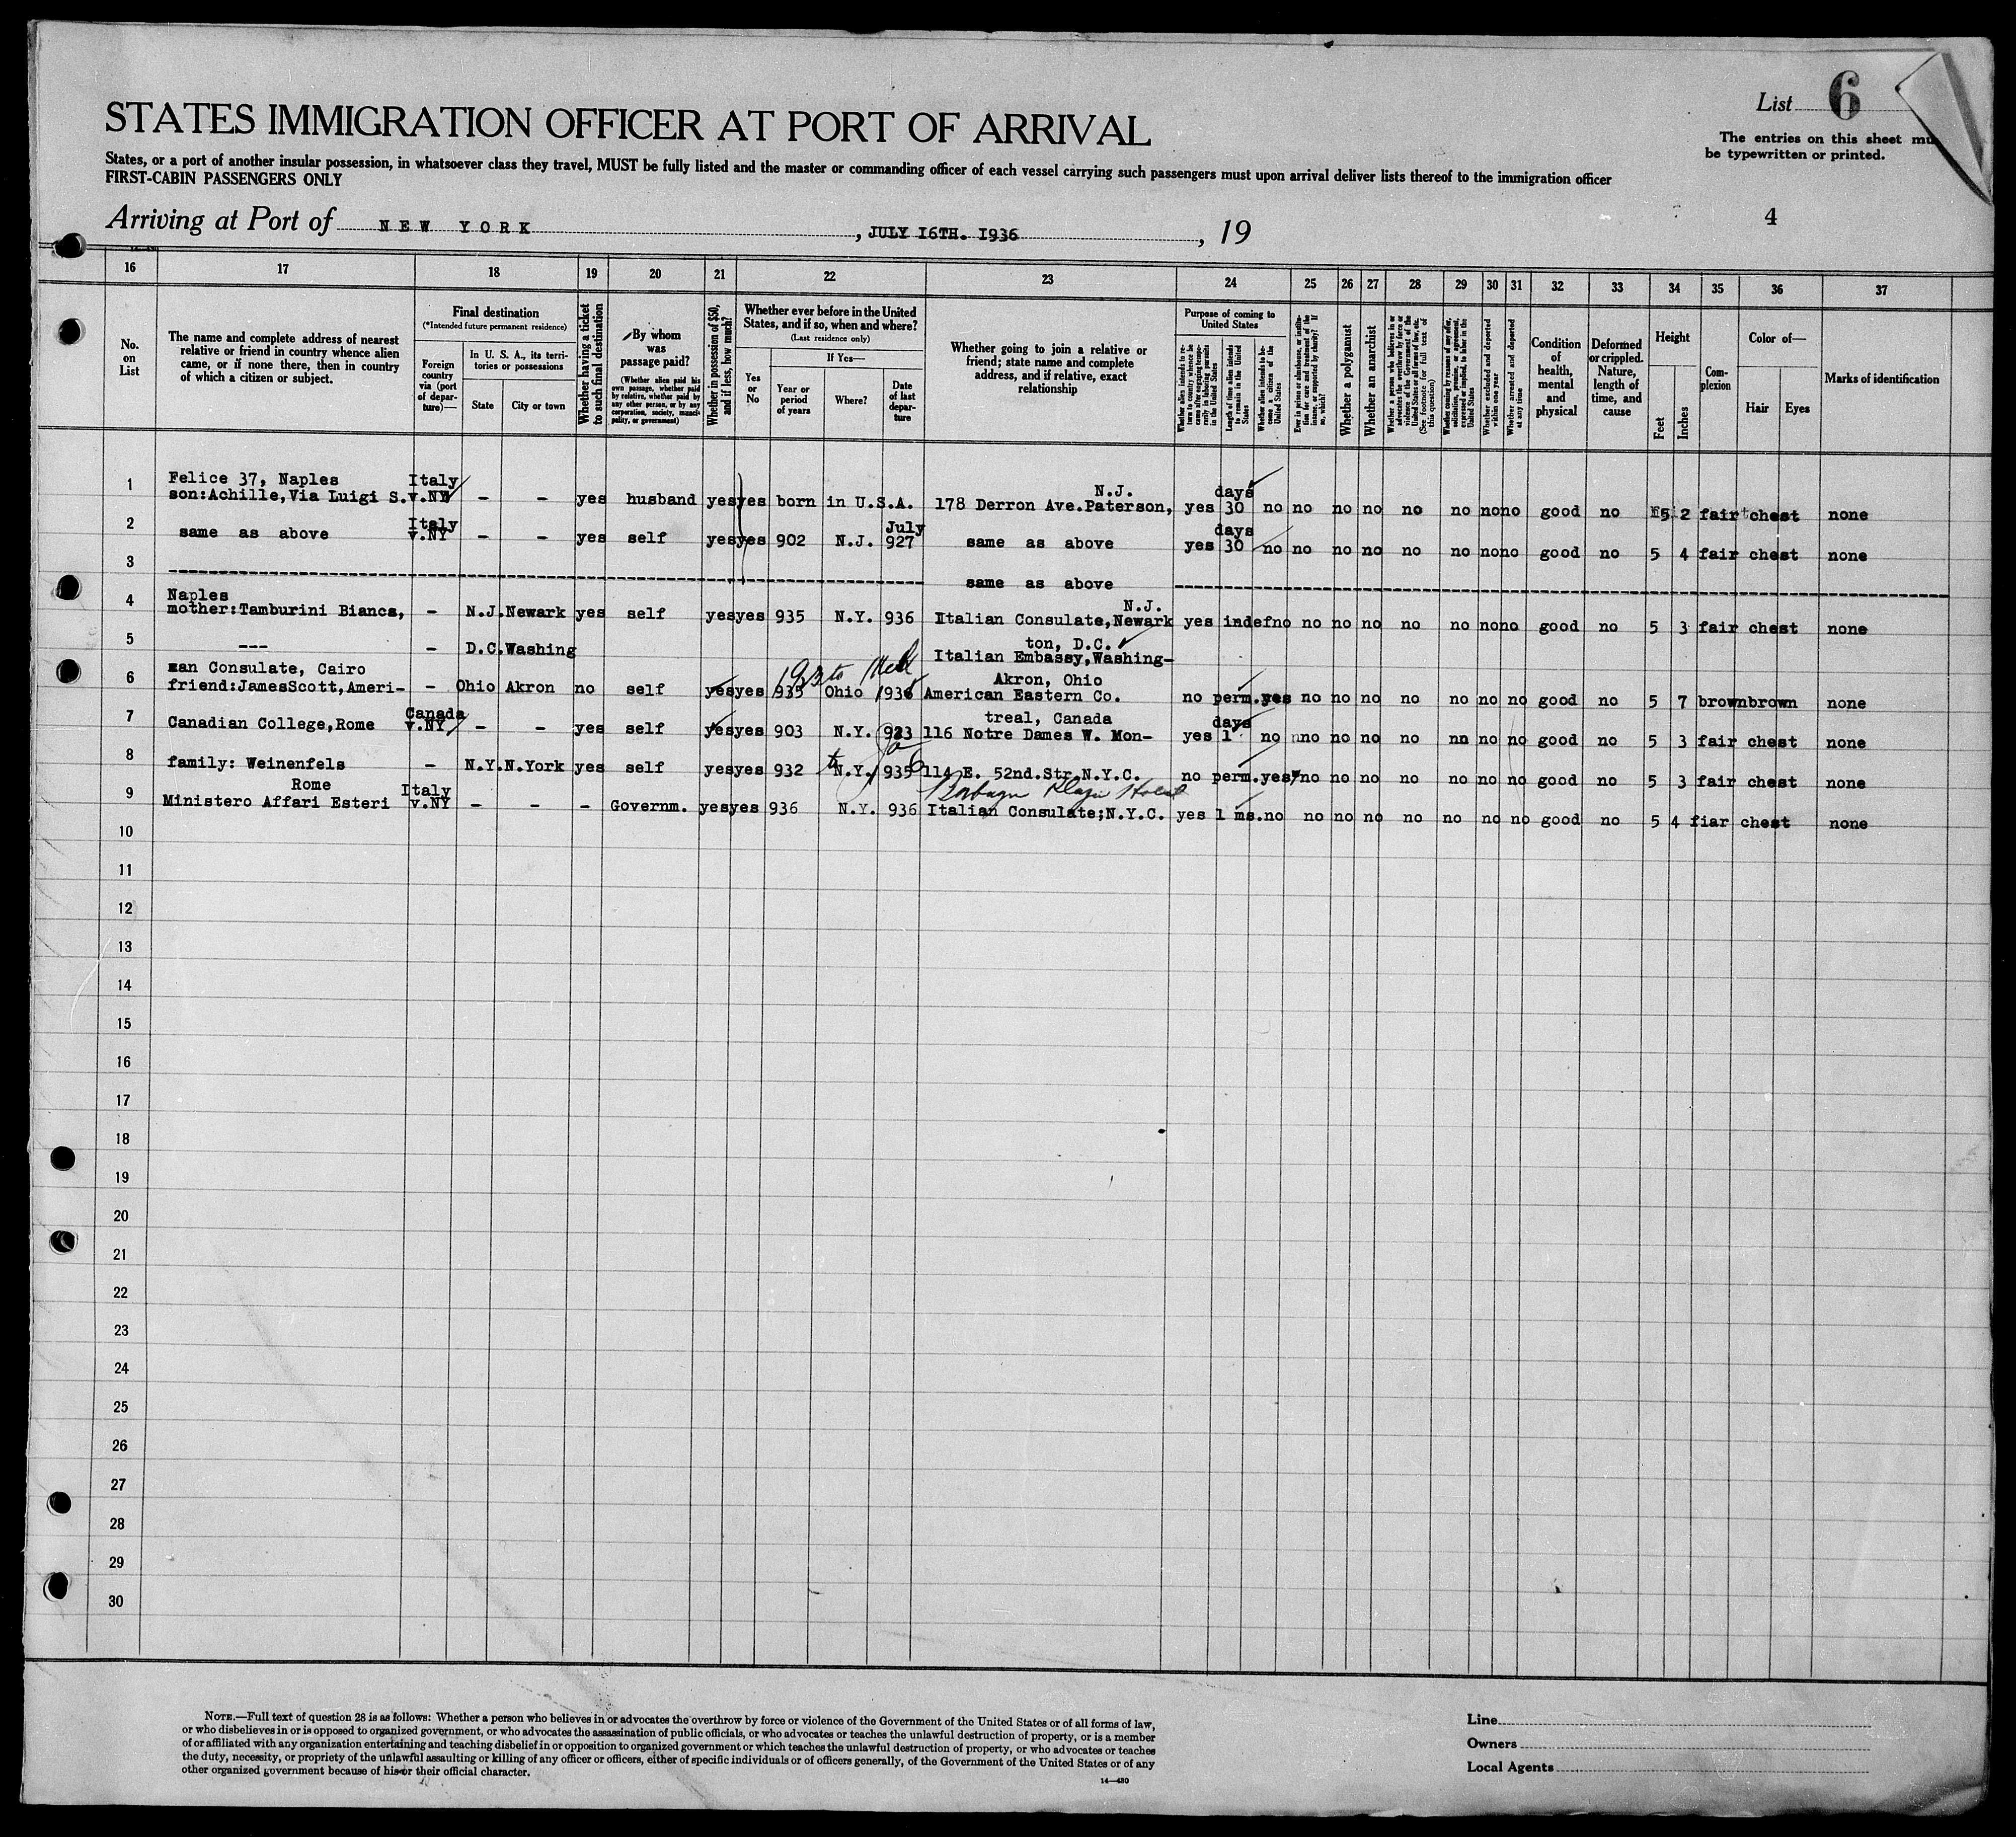 List 6
STATES IMMIGRATION OFFICER AT PORT OF ARRIVAL
The entries on this sheet
be typewritten or printed.
States, or a port of another insular possession, in whatsoever class they travel, MUST be fully listed and the master or commanding officer of each vessel carrying such passengers must upon arrival deliver lists thereof to the immigration officer
FIRST-CABIN PASSENGERS ONLY
Arriving at Port of NEW YORK, JULY 16TH. 1936, 19
4
16 17 18 19 20 21 22 23 24 25 26 27 28 29 30 31 32 33 34 35 36 37
No. on List
The name and complete address of nearest relative or friend in country whence alien came, or if none there, then in country of which a citizen or subject.
Final destination
(*Intended future permanent residence)
Foreign country via (port of departure)—
In U. S. A., its territories or possessions
State
City or town
Whether having a ticket to such final destination
By whom was passage paid?
(Whether alien paid his own passage, whether paid by relative, whether paid by any other person, or by any corporation, society, municipality, or government)
Whether in possession of $50, and if less, how much?
Whether ever before in the United States, and if so, when and where?
(Last residence only)
Yes or No
If Yes—
Year or period of years
Where?
Date of last departure
Whether going to join a relative or friend; state name and complete address, and if relative, exact relationship
Purpose of coming to United States
Whether alien intends to return to country whence he came after engaging temporarily in laboring pursuits in the United States
Length of time alien intends to remain in the United States
Whether alien intends to become a citizen of the United States
Ever in prison or almshouse, or institution for care and treatment of the insane, or supported by charity? If so, which?
Whether a polygamist
Whether an anarchist
Whether a person who believes in or advocates the overthrow by force or violence of the Government of the United States or all forms of law, etc. (See footnote for full text of this question)
Whether coming by reason of any offer, solicitation, promise, or agreement, expressed or implied, to labor in the United States
Whether excluded and deported within one year
Whether arrested and deported at any time
Condition of health, mental and physical
Deformed or crippled. Nature, length of time, and cause
Height
Feet
Inches
Complexion
Color of—
Hair
Eyes
Marks of identification
Felice 37, Naples Italy N.J. days
1 son:Achille,Via Luigi S. v.NY - - yes husband yes yes born in U.S.A. 178 Derron Ave.Paterson, yes 30 no no no no no no no no good no 5 2 fair chest none
Italy July days
2 same as above v.NY - - yes self yes yes 902 N.J. 927 same as above yes 30 no no no no no no no no good no 5 4 fair chest none
3 same as above
Naples N.J.
4 mother:Tamburini Bianca, - N.J. Newark yes self yes yes 935 N.Y. 936 Italian Consulate,Newark yes indef no no no no no no no no good no 5 3 fair chest none
ton, D.C.
5 --- - D.C. Washing Italian Embassy,Washing-
can Consulate, Cairo 1933 to Akron, Ohio
6 friend:JamesScott,Ameri- - Ohio Akron no self yes yes 935 Ohio 936 American Eastern Co. no perm. yes no no no no no no no good no 5 7 brown brown none
Canada treal, Canada days
7 Canadian College,Rome v.NY - - yes self yes yes 903 N.Y. 923 116 Notre Dames W. Mon- yes 1 no no no no no nn no no good no 5 3 fair chest none
8 family: Weinenfels - N.Y. N.York yes self yes yes 932 to N.Y. 935 6 114 E. 52nd.Str.N.Y.C. no perm. yes no no no no no no no good no 5 3 fair chest none
Rome Italy Plaza Hotel
9 Ministero Affari Esteri v.NY - - - Governm. yes yes 936 N.Y. 936 Italian Consulate;N.Y.C. yes 1 ms. no no no no no no no no good no 5 4 fiar chest none
10
11
12
13
14
15
16
17
18
19
20
21
22
23
24
25
26
27
28
29
30
NOTE.—Full text of question 28 is as follows: Whether a person who believes in or advocates the overthrow by force or violence of the Government of the United States or of all forms of law,
or who disbelieves in or is opposed to organized government, or who advocates the assassination of public officials, or who advocates or teaches the unlawful destruction of property, or is a member
of or affiliated with any organization entertaining and teaching disbelief in or opposition to organized government or which teaches the unlawful destruction of property, or who advocates or teaches
the duty, necessity, or propriety of the unlawful assaulting or killing of any officer or officers, either of specific individuals or of officers generally, of the Government of the United States or of any
other organized government because of his or their official character.
14—430
Line
Owners
Local Agents